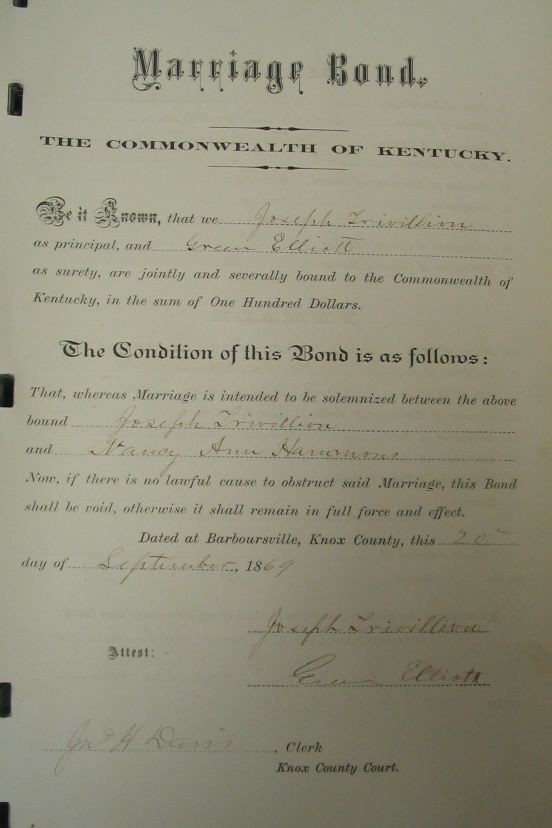 Marriage Bond.
THE COMMONWEALTH OF KENTUCKY.
Be it Known, that we Joseph Trivillion
as principal, and Green Elliott
as surety, are jointly and severally bound to the Commonwealth of
Kentucky, in the sum of One Hundred Dollars.
The Condition of this Bond is as follows:
That, whereas Marriage is intended to be solemnized between the above
bound Joseph Trivillion
and Nancy Ann Hammons
Now, if there is no lawful cause to obstruct said Marriage, this Bond
shall be void, otherwise it shall remain in full force and effect.
Dated at Barboursville, Knox County, this 20
day of September, 1869
Joseph Trivillion
Attest:
Green Elliott
Jno H Davis, Clerk
Knox County Court.